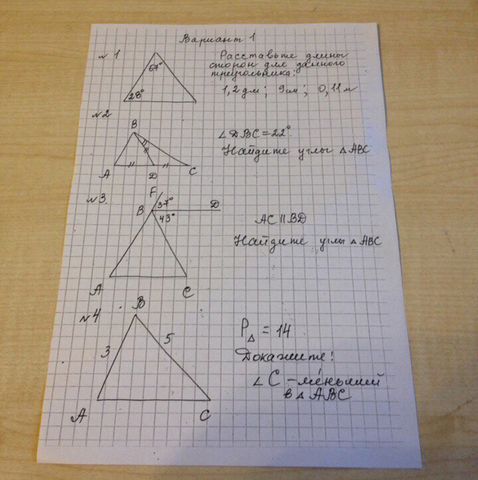 Вариант 1
№1
67°
28°
Расставьте длины
сторон для данного
треугольника:
1,2 дм; 9см; 0,11 м
№2
B
A
D
C
∠DBC=22°
Найдите углы △ABC
№3.
F
B
37°
D
43°
A
C
AC || BD
Найдите углы △ABC
№4
B
3
5
A
C
P△ = 14
Докажите!
∠C - меньший
в △ABC